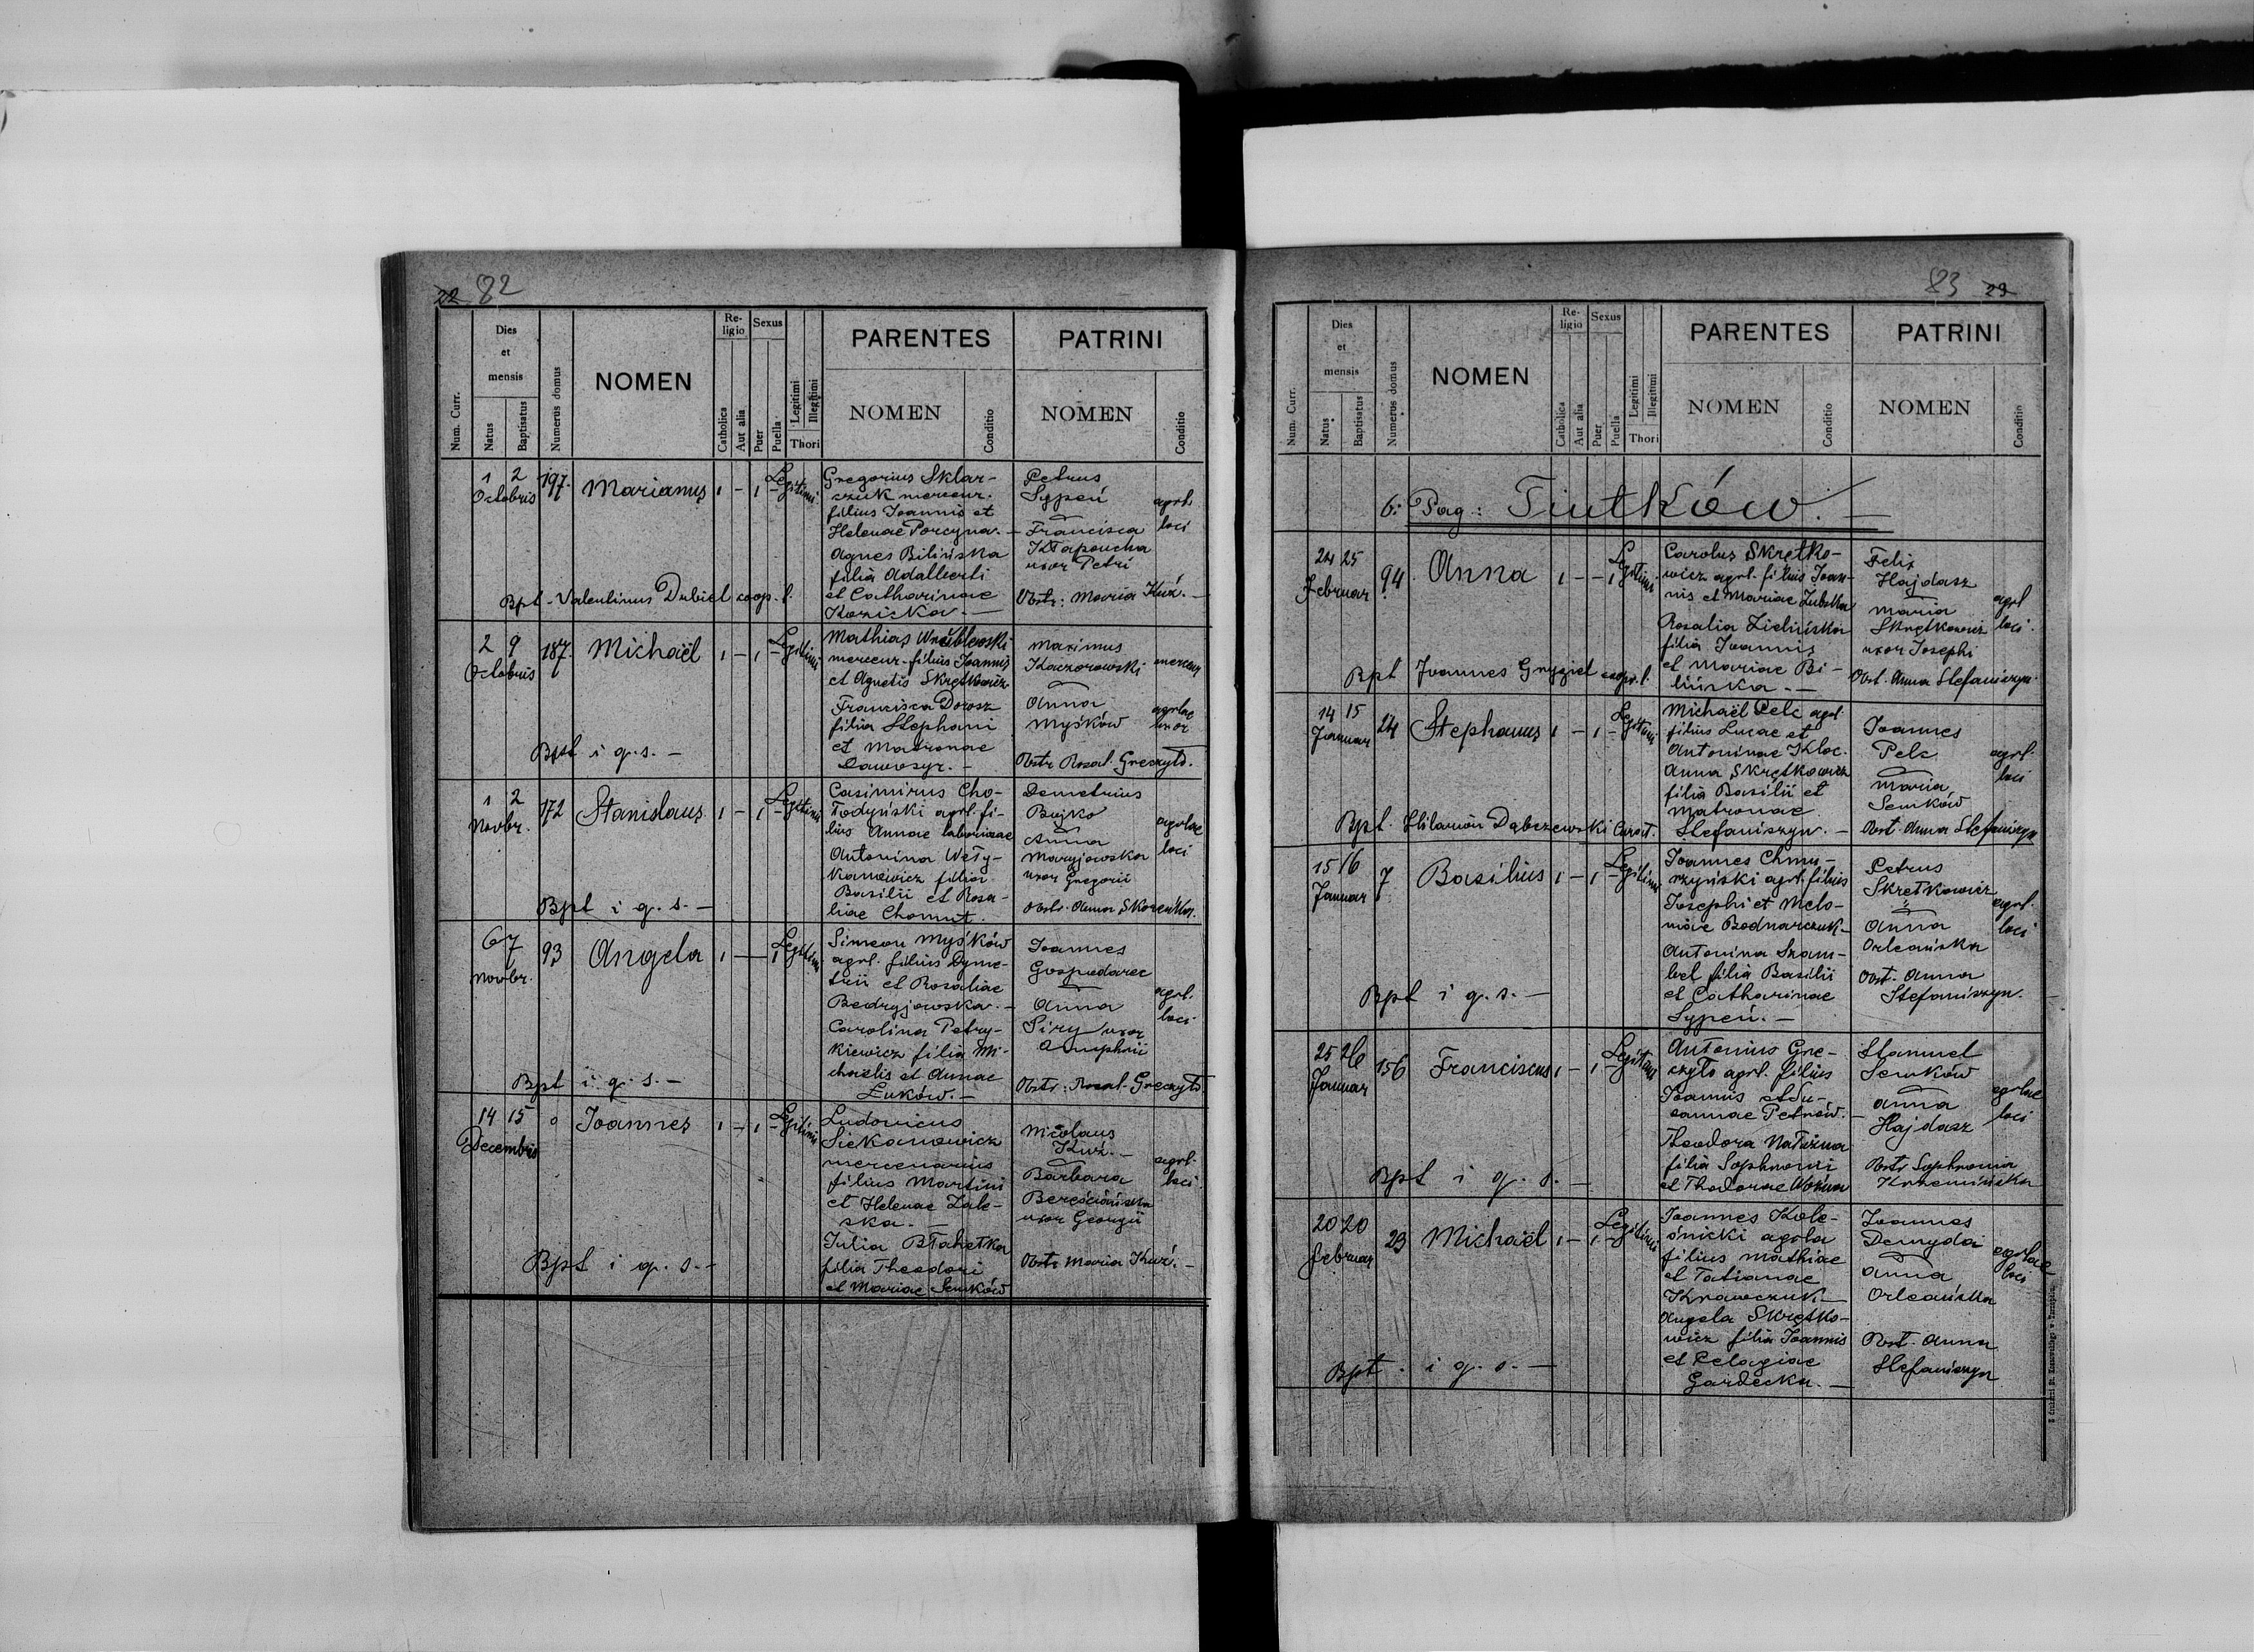 22 82
Num. Curr.
Dies et mensis
Natus
Baptisatus
Numerus domus
NOMEN
Religio
Catholica
Aut alia
Sexus
Puer
Puella
Legitimi
Illegitimi
Thori
PARENTES
NOMEN
Conditio
PATRINI
NOMEN
Conditio
1 2
Octobris
197.
Marianus
1 - 1 -
Legitimi
Gregorius Sklar-
czuk mercenr.
filius Joannis et
Helenae Porcyna. -
Agnes Bilińska
filia Adalberti
et Catharinae
Kozicka. -
Petrus
Sypeń
Francisca
Kłapoucha
uxor Petri
Obstr: Maria Kuź. -
agrl.
loci
Bpt - Valentinus Dubiel coop. l.
2 9
Octobris
187.
Michaël
1 - 1 -
Legitimi
Mathias Wróblewski
mercenr. filius Joannis
et Agnetis Skrętkowicz
Francisca Dorosz
filia Stephani
et Matronae
Dawosyr. -
Maximus
Kaczorowski
Anna
Myśków
Obstr Rosal. Greczyło.
mercenr
agrlae
uxor
Bpt i g. s. -
1 2
Novbr.
172
Stanislaus
1 - 1 -
Legitimi
Casimirus Cho-
łodyński agrl. fi-
lius Annae laboriosae
Antonina Wety-
kanowicz filia
Basilii et Rosa-
liae Chomut.
Demetrius
Bujko
Anna
Maryjowska
uxor Gregorii
Obstr. Anna Skoreńka.
agrlae
loci
Bpt i g. s. -
6 7
Novbr.
93
Angela
1 - - 1
Legitimi
Simeon Myśków
agrl. filius Dyme-
trii et Rosaliae
Bedryjowska. -
Carolina Petry-
kiewicz filia Mi-
chaelis et Annae
Łuków. -
Joannes
Gospodarec
Anna
Siry uxor
Onuphrii
Obstr: Rosal. Greczyło
agrl.
loci
Bpt i g. s. -
14 15
Decembris
0
Joannes
1 - 1 -
Legitimi
Ludovicus
Siekanowicz
mercenarius
filius Martini
et Helenae Zale-
ska. -
Julia Błahetka
filia Theodori
et Mariae Semków
Nicolaus
Kuz. -
Barbara
Bereściańska
uxor Georgii
Obstr Maria Kuź. -
agrl.
loci
Bpt i g. s. -
83 23
Num. Curr.
Dies et mensis
Natus
Baptisatus
Numerus domus
NOMEN
Religio
Catholica
Aut alia
Sexus
Puer
Puella
Legitimi
Illegitimi
Thori
PARENTES
NOMEN
Conditio
PATRINI
NOMEN
Conditio
6: Pag: Tiutków. -
24 25
Februar
94.
Anna
1 - - 1
Legitimi
Carolus Skrętko-
wicz agrl. filius Joan-
nis et Mariae Zubska
Rosalia Zielińska
filia Joannis
et Mariae Bi-
lińska. -
Felix
Hajdasz
Maria
Skrętkowicz
uxor Josephi
Obst. Anna Stefaniszyn.
agrl
loci.
Bpt Joannes Grygiel coop. l.
14 15
Januar
24
Stephanus
1 - 1 -
Legitimi
Michaël Pelc agrl.
filius Lucae et
Antoninae Kloc.
Anna Skrętkowicz
filia Basilii et
Matronae
Stefaniszyn. -
Joannes
Pelc
Maria
Semków
Obst. Anna Stefaniszyn
agrl.
loci
Bpt. Hilarion Dąbczewski Curat.
15 16
Januar
7
Basilius
1 - 1 -
Legitimi
Joannes Chmu-
rzyński agrl. filius
Josephi et Melo-
niae Bodnarczuk. -
Antonina Szam-
bel filia Basilii
et Catharinae
Sypeń. -
Petrus
Skrętkowicz
Anna
Orleańska
Obst. Anna
Stefaniszyn.
agrl.
loci
Bpt i g. s. -
25 26
Januar
156
Franciscus
1 - 1 -
Legitimi
Antonius Gre-
czyło agrl. filius
Joannis et Su-
sannae Petrów. -
Theodora
filia Sophronii
et Theodorae
Semków
Anna
Hajdasz
Obstr Sophronia
Krzemińska
agrlae
loci
Bpt i g. s. -
20 20
Februar
23
Michaël
1 - 1 -
Legitimi
Joannes Kole-
śnicki agrla
filius Mathiae
et Tatianae
Krawczuk. -
Angela Skrętko-
wicz filia Joannis
et Pelagiae
Gardecka. -
Joannes
Demyda
Anna
Orleańska
Obst. Anna
Stefaniszyn
agrlae
loci
Bpt. i g. s. -